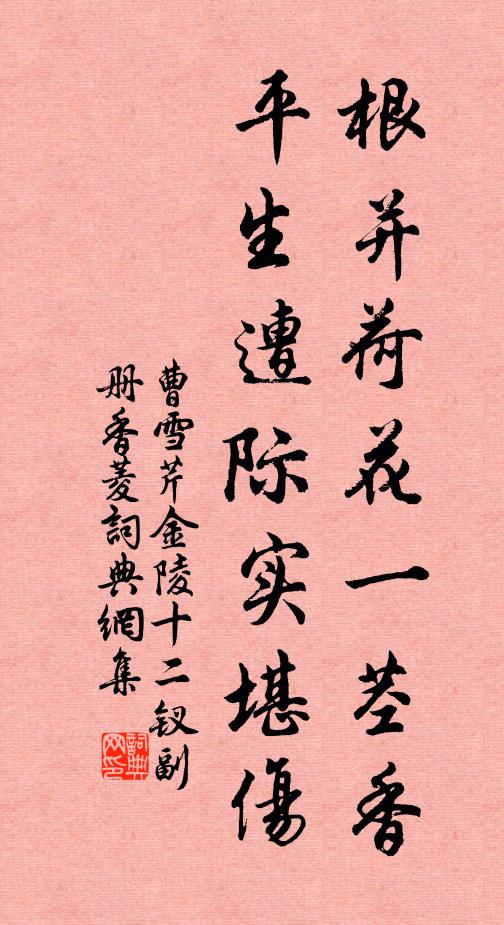 根并荷花一茎香
平生遭际实堪傷
曹雪芹金陵十二钗副
册香菱詞典網集
詞典
网印